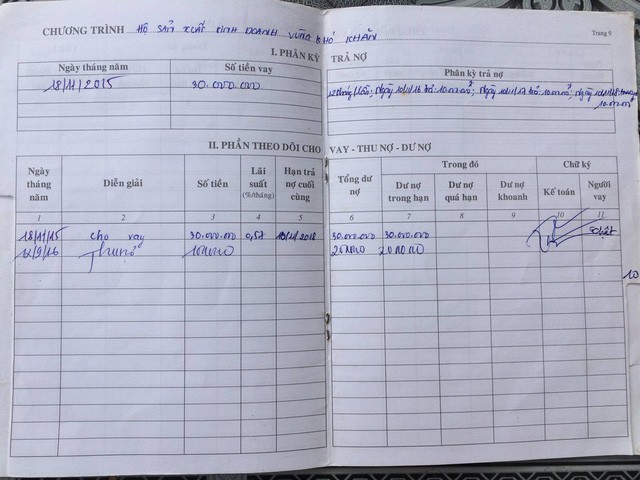 CHƯƠNG TRÌNH HỘ SẢN XUẤT KINH DOANH VÙNG KHÓ KHĂN Trang 9
I. PHÂN KỲ TRẢ NỢ
Ngày tháng năm Số tiền vay Phân kỳ trả nợ
18/11/2015 30.000.000 12 tháng/1 lần; Ngày 10/11/16 trả: 10.000.000đ; Ngày 10/11/17 trả: 10.000.000đ; Ngày
10.000.000đ
II. PHẦN THEO DÕI CHO VAY - THU NỢ - DƯ NỢ
Ngày tháng năm Diễn giải Số tiền Lãi suất (%/tháng) Hạn trả nợ cuối cùng Tổng dư nợ Trong đó Chữ ký
Dư nợ trong hạn Dư nợ quá hạn Dư nợ khoanh Kế toán Người vay
1 2 3 4 5 6 7 8 9 10 11
18/11/15 cho vay 30.000.000 30.000.000 30.000.000
12/9/16 Thu nợ
10